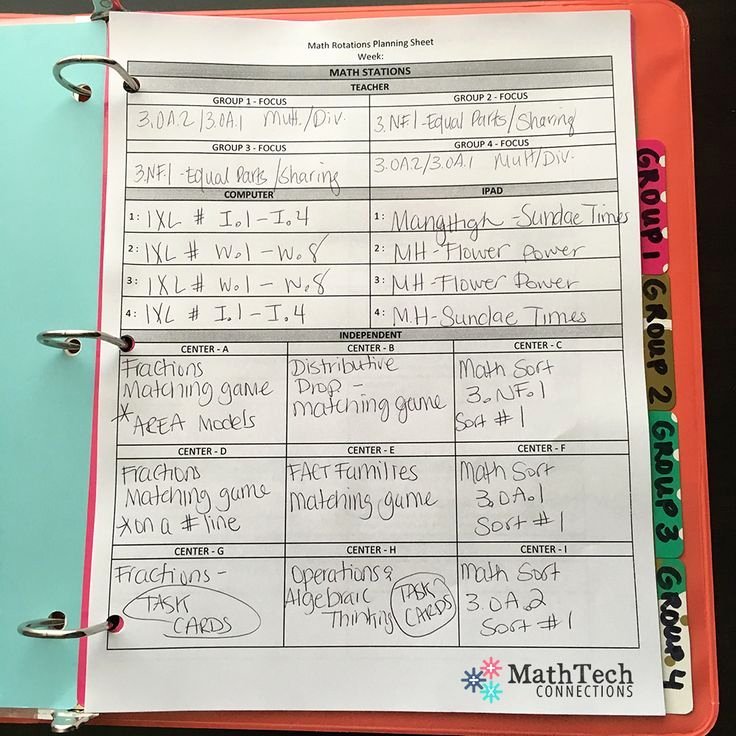 Math Rotations Planning Sheet
Week:
MATH STATIONS
TEACHER
GROUP 1 - FOCUS
GROUP 2 - FOCUS
3.OA.2 / 3.OA.1 Mult./Div.
3.NF.1 - Equal Parts/Sharing
GROUP 3 - FOCUS
GROUP 4 - FOCUS
3.NF.1 - Equal Parts / Sharing
3.OA.2/3.OA.1 Mult/Div.
COMPUTER
IPAD
1: IXL # I.1 - I.4
1: Manghhgh - Sundae Times
2: IXL # W.1 - W.8
2: MH - Flower Power
3: IXL # W.1 - W.8
3: MH - Flower Power
4: IXL # I.1 - I.4
4: M.H - Sundae Times
INDEPENDENT
CENTER - A
CENTER - B
CENTER - C
Fractions
Matching game
* AREA Models
Distributive
Drop -
matching game
Math Sort
3.NF.1
Sort # 1
CENTER - D
CENTER - E
CENTER - F
Fractions
Matching game
* on a # line
FACT Families
matching game
Math Sort
3.OA.1
Sort # 1
CENTER - G
CENTER - H
CENTER - I
Fractions -
TASK
CARDS
Operations &
Algebraic
Thinking
TASK
CARDS
Math Sort
3.OA.2
Sort # 1
MathTech
CONNECTIONS
GROUP 1
GROUP 2
GROUP 3
GROUP 4